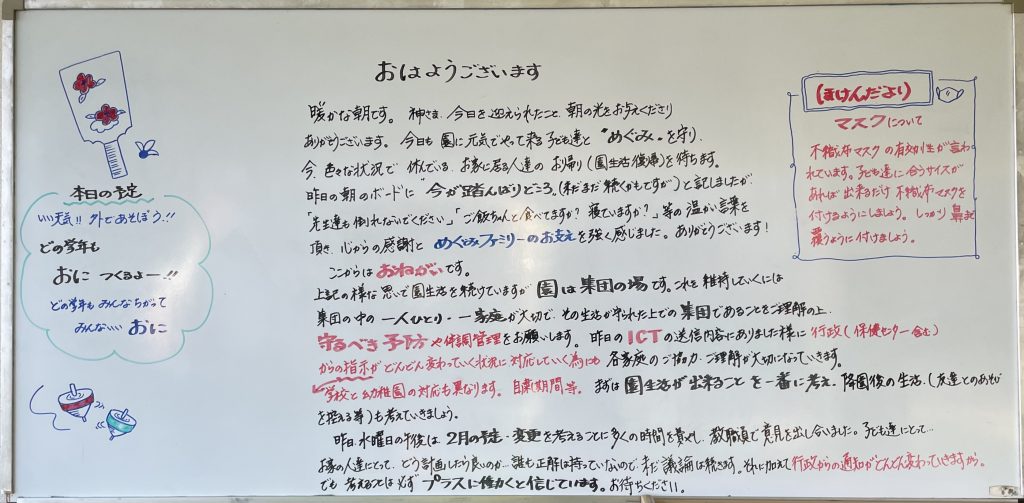 おはようございます
暖かな朝です。神さま、今日を迎えられたこと、朝の光をお与えくださり
ありがとうございます。今日も園に元気でやって来る子ども達と“めぐみ”を守り、
今、色々な状況で休んでいる、お家に居る人達のお帰り(園生活復帰)を待ちます。
昨日の朝のボードに“今が踏んばりどころ。(まだまだ続くかもですが)と記しましたが、
「先生達も倒れないでください」「ご飯ちゃんと食べてますか？寝ていますか？」等の温かい言葉を
頂き、心からの感謝と めぐみファミリーのお支えを強く感じました。ありがとうございます！
ここからはおねがいです。
上記の様な思いで園生活を続けていますが園は集団の場です。これを維持していくには
集団の中の一人ひとり・一家庭が大切で、その生活が守られた上での集団であることをご理解の上、
守るべき予防や体調管理をお願いします。昨日のICTの送信内容にありました様に行政(保健センター含む)
からの指示がどんどん変わっていく状況に対応していく為にも 各家庭のご協力、ご理解が大切になっていきます。
学校と幼稚園の対応も異なります。自粛期間等。まずは園生活が出来ることを一番に考え、降園後の生活、(友達とのあそび
を控える等)も考えていきましょう。
昨日、水曜日の午後は、2月の予定・変更を考えることに多くの時間を費やし、教職員で意見を出し合いました。子ども達にとって…
お家の人達にとって、どう計画したら良いのか…誰も正解は持っていないので、まだ議論は続きます。それに加えて行政からの通知がどんどん変わっていきますから。
でも考えることは必ずプラスに働くと信じています。お待ちください。
本日の予定
いい天気!! 外であそぼう!!
どの学年も
おに つくるよー!!
どの学年も みんなちがって
みんないい おに
ほけんだより
マスクについて
不織布マスクの有効性が言わ
れています。子ども達に合うサイズが
あれば出来るだけ不織布マスクを
付けるようにしましょう。しっかり鼻まで
覆うように付けましょう。